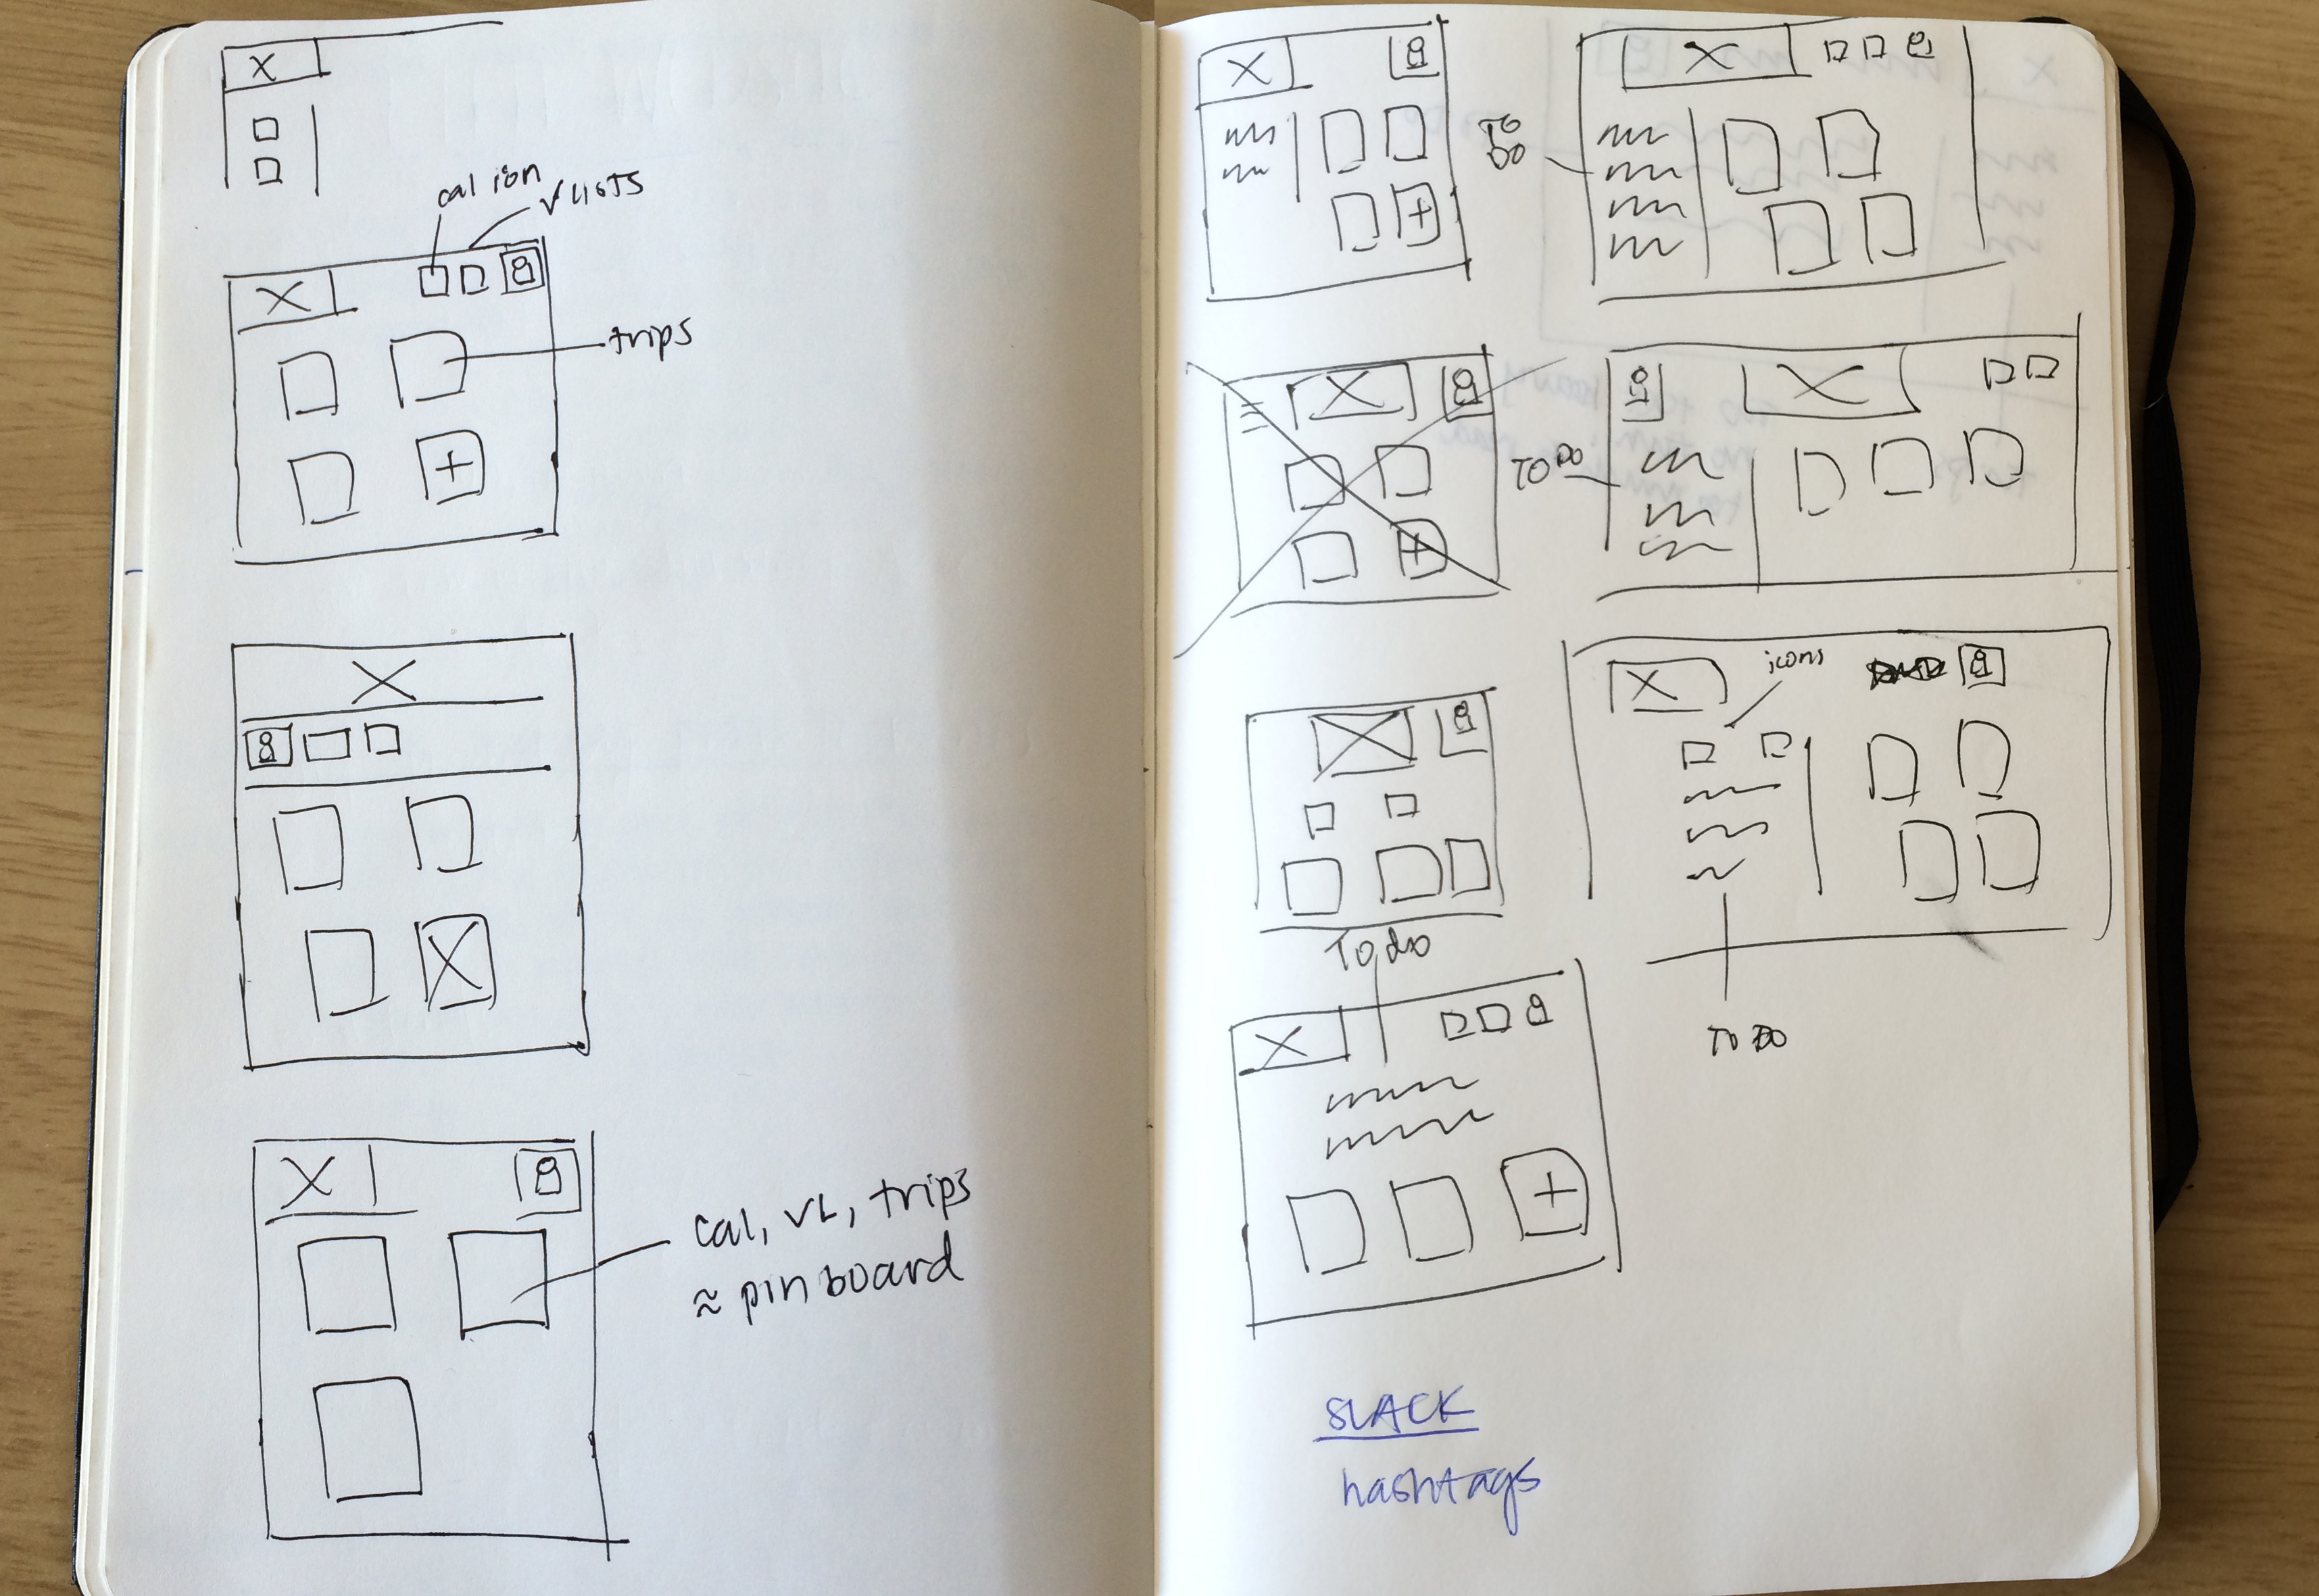 cal ion
√ LISTS
trips
cal, √L, trips
≈ pin board
TO
DO
TO DO
icons
To do
TO DO
SLACK
hashtags